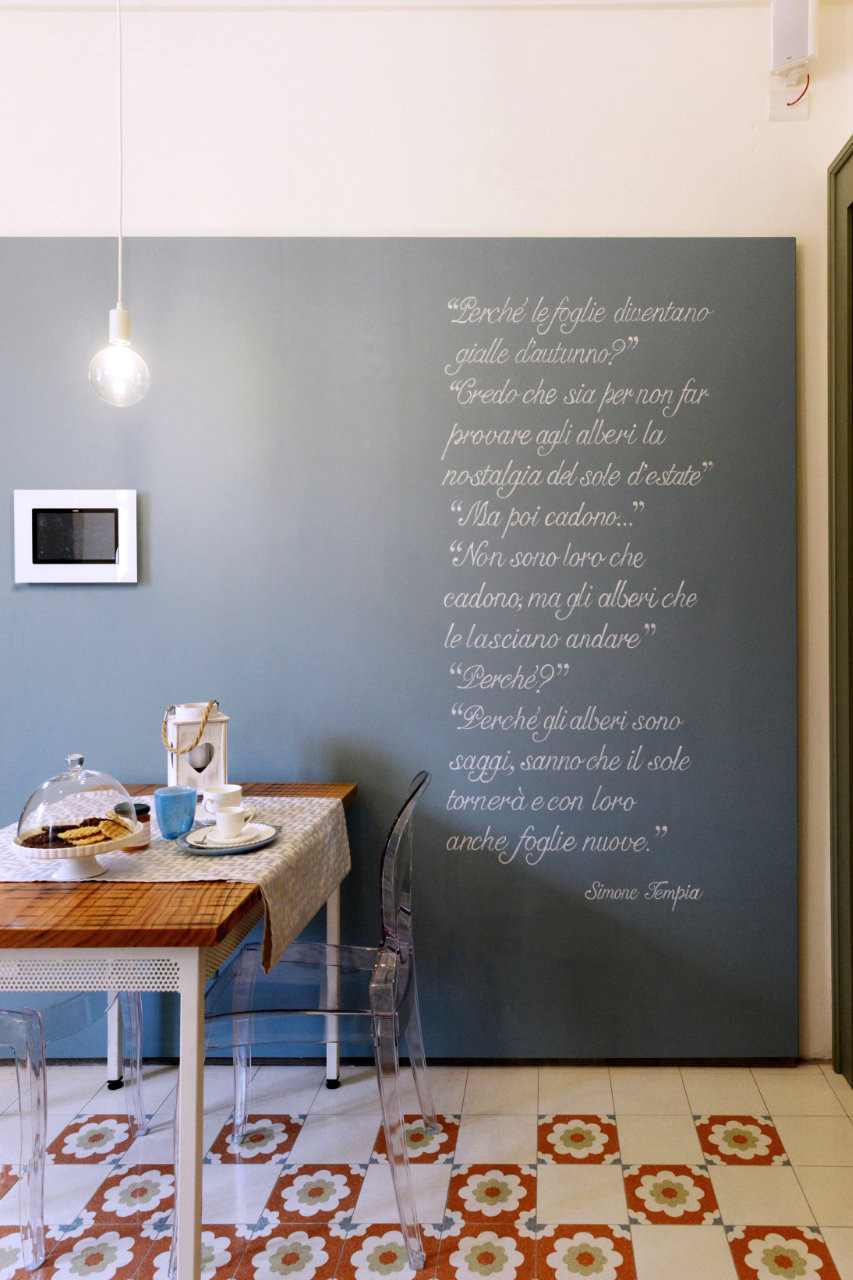 “Perché le foglie diventano
gialle d'autunno?”
“Credo che sia per non far
provare agli alberi la
nostalgia del sole d'estate”
“Ma poi cadono...”
“Non sono loro che
cadono, ma gli alberi che
le lasciano andare”
“Perché?”
“Perché gli alberi sono
saggi, sanno che il sole
tornerà e con loro
anche foglie nuove.”
Simone Tempia